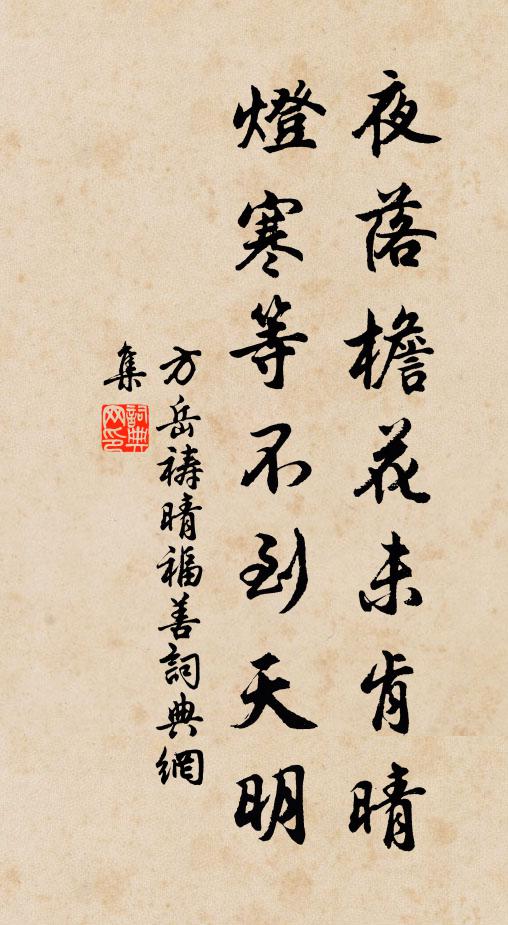 夜落檐花未肯晴
燈寒等不到天明
方岳祷晴福善詞典網
集
詞典网印